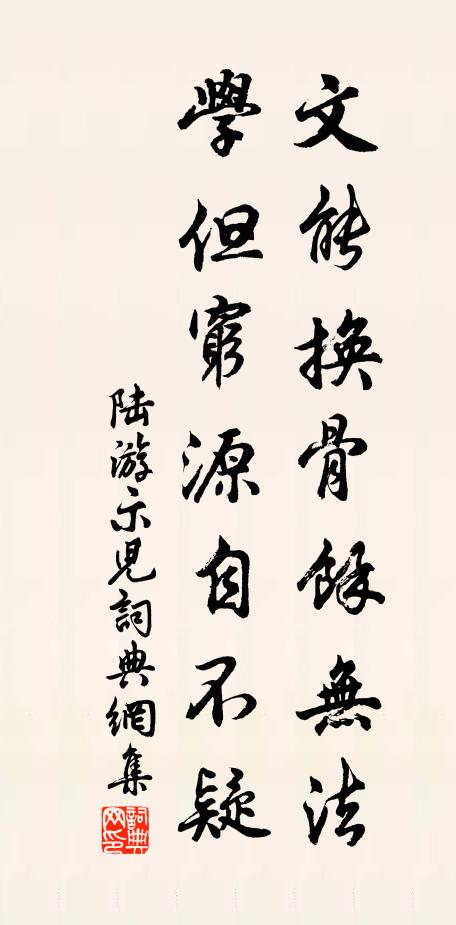 文能換骨餘無法
學但窮源自不疑
陆游示兒詞典網集
詞典网印